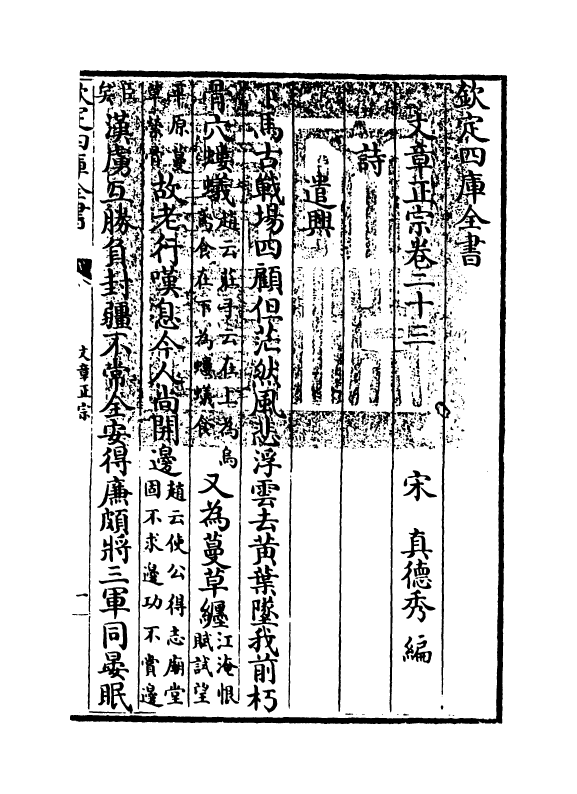 欽定四庫全書
文章正宗卷二十三
宋 真德秀 編
詩
遣興
下馬古戰場四顧但茫然風悲浮雲去黃葉墜我前朽
骨穴螻蟻趙云莊子云在上為烏鳶食在下為螻蟻食又為蔓草纏江淹恨賦試望
平原蔓草縈骨故老行嘆息今人尚開邊趙云使公得志廟堂固不求邊功不賞邊
臣矣漢虜互勝負封疆不常全安得廉頗將三軍同晏眠
欽定四庫全書
文章正宗
一